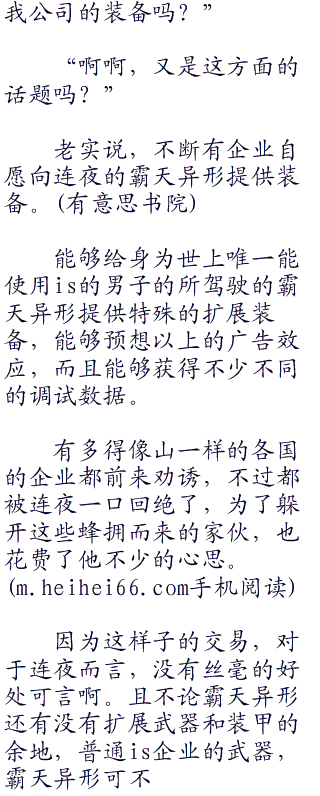 我公司的装备吗？”
“啊啊，又是这方面的
话题吗？”
老实说，不断有企业自
愿向连夜的霸天异形提供装
备。(有意思书院)
能够给身为世上唯一能
使用is的男子的所驾驶的霸
天异形提供特殊的扩展装
备，能够预想以上的广告效
应，而且能够获得不少不同
的调试数据。
有多得像山一样的各国
的企业都前来劝诱，不过都
被连夜一口回绝了，为了躲
开这些蜂拥而来的家伙，也
花费了他不少的心思。
(m.heihei66.com手机阅读)
因为这样子的交易，对
于连夜而言，没有丝毫的好
处可言啊。且不论霸天异形
还有没有扩展武器和装甲的
余地，普通is企业的武器，
霸天异形可不